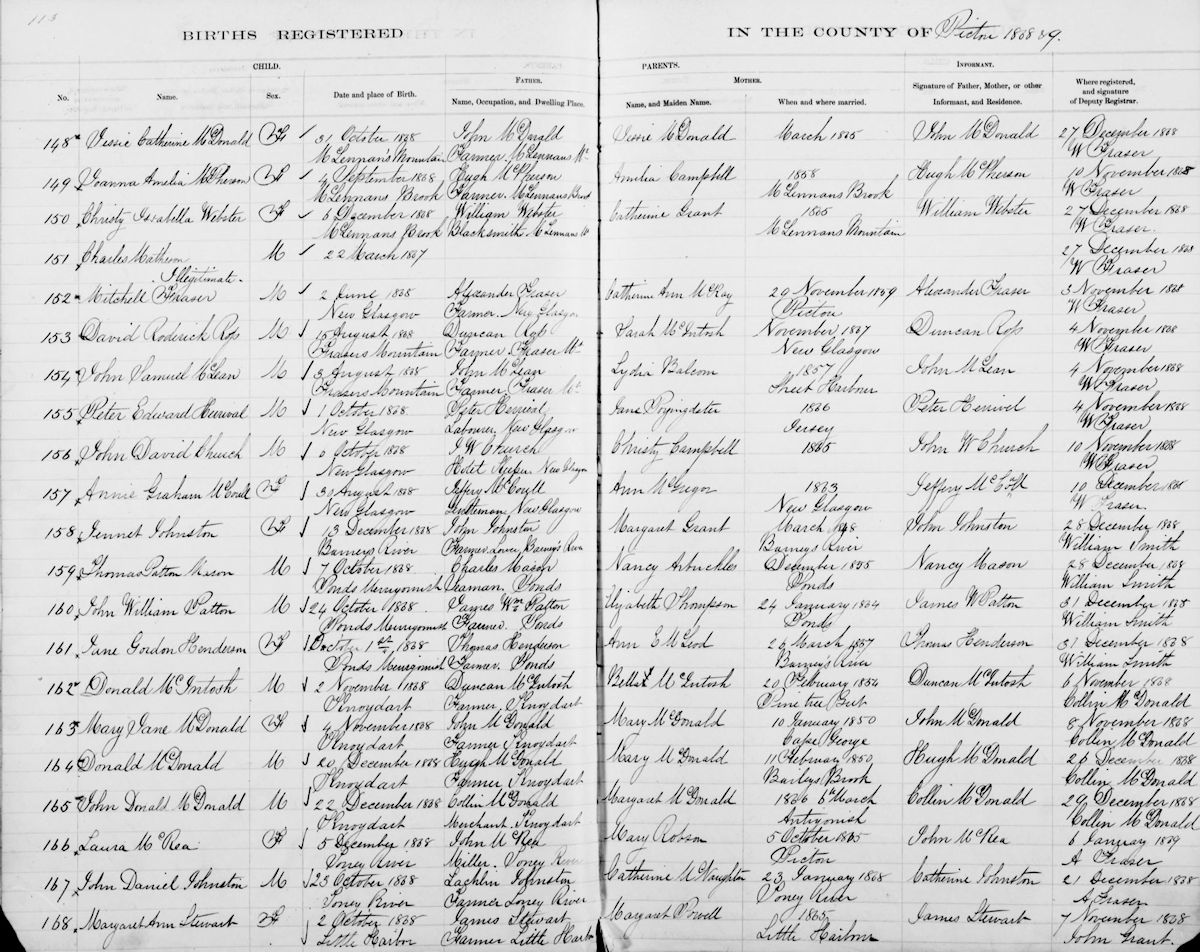 113
BIRTHS REGISTERED IN THE COUNTY OF Pictou 1868 & 9.
CHILD. PARENTS. INFORMANT.
FATHER. MOTHER.
No. Name. Sex. Date and place of Birth. Name, Occupation, and Dwelling Place. Name, and Maiden Name. When and where married. Signature of Father, Mother, or other Informant, and Residence. Where registered, and signature of Deputy Registrar.
148 Jessie Catherine McDonald F 31 October 1868 John McDonald Jessie McDonald March 1865 John McDonald 27 December 1868
McLennans Mountain Farmer McLennans Mt W Fraser
149 Joanna Amelia McPherson F 4 September 1868 Hugh McPherson Amelia Campbell 1858 Hugh McPherson 10 November 1868
McLennans Brook Farmer McLennans Brook McLennans Brook W Fraser
150 Christy Isabella Webster F 6 December 1868 William Webster Catherine Grant 1865 William Webster 27 December 1868
McLennans Brook Blacksmith McLennans McLennans Mountain W Fraser.
151 Charles Matheson M 22 March 1867 27 December 1868
Illegitimate. W Fraser
152 Mitchell Fraser M 2 June 1868 Alexander Fraser Catherine Ann McKay 29 November 1859 Alexander Fraser 3 November 1868
New Glasgow Farmer. New Glasgow Pictou W Fraser
153 David Roderick Ross M 15 August 1868 Duncan Ross Sarah McIntosh November, 1867 Duncan Ross 4 November 1868
Frasers Mountain Farmer. Fraser Mt New Glasgow W Fraser
154 John Samuel McLean M 3 August 1868 John McLean Lydia Balcom 1857 John McLean 4 November 1868
Frasers Mountain Farmer Fraser Mt. Sheet Harbour W Fraser
155 Peter Edward Herrival M 1 October 1868 Peter Herrival Jane 1866 Peter Herrivel 4 November 1868
New Glasgow Labourer New Glasgow Jersey W Fraser
156 John David Church M October 1868 J W Church Christy Campbell 1865 John W Church 10 November 1868
New Glasgow Hotel Keeper New Glasgow W Fraser
157 Annie Graham McCoull F 30 August 1868 Jeffery McCoull Ann McGregor 1863 Jeffery 10 December 1868
New Glasgow Gentleman New Glasgow New Glasgow W Fraser.
158 Jennet Johnston F 13 December 1868 John Johnston Margaret Grant March John Johnston 28 December 1868
Barneys River Farmer Barneys River Barneys River William Smith
159 Thomas Patton Mason M 7 October 1868 Charles Mason Nancy Arbuckles December 1855 Nancy Mason 28 December 1868
Ponds Merigomish Seaman Ponds Ponds William Smith
160 John William Patton M 24 October 1868 James Wm Patton Elizabeth Thompson 24 January 1864 James W Patton 31 December 1868
Ponds Merigomish Farmer. Ponds Ponds William Smith
161 Jane Gordon Henderson F October 1st 1868 Thomas Henderson Ann E McLeod 26 March 1857 Thomas Henderson 31 December 1868
Ponds Merigomish Farmer. Ponds Barneys River William Smith
162 Donald McIntosh M 2 November 1868 Duncan McIntosh Bella McIntosh 20 February 1854 Duncan McIntosh 6 November 1868
Knoydart Farmer. Knoydart Pine tree Gut Collin McDonald
163 Mary Jane McDonald F 4 November 1868 John McDonald Mary McDonald 10 January 1850 John McDonald 8 November 1868
Knoydart Farmer Knoydart Cape George Collin McDonald
164 Donald McDonald M 20 December 1868 Hugh McDonald Mary McDonald 11 February 1850 Hugh McDonald December 1868
Knoydart Farmer Knoydart Baileys Brook Collin McDonald
165 John Donald McDonald M 22 December 1868 Collin McDonald Margaret McDonald 1866 6th March Collin McDonald 29 December 1868
Knoydart Merchant. Knoydart Antigonish Collin McDonald
166 Laura McRea F 5 December 1868 John McRea Mary Robson 5 October 1865 John McRea 6 January 1869
Toney River Miller. Toney River Pictou A Fraser
167 John Daniel Johnston M 23 October 1868 Lachlin Johnston Catherine McNaughton 23 January 1868 Catherine Johnston 21 December 1868
Toney River Farmer Toney River Toney River A Fraser
168 Margaret Ann Stewart F 2 October 1868 James Stewart Margaret Powell 1865 James Stewart 7 November 1868
Little Harbor Farmer Little Harbor Little Harbour John Grant.